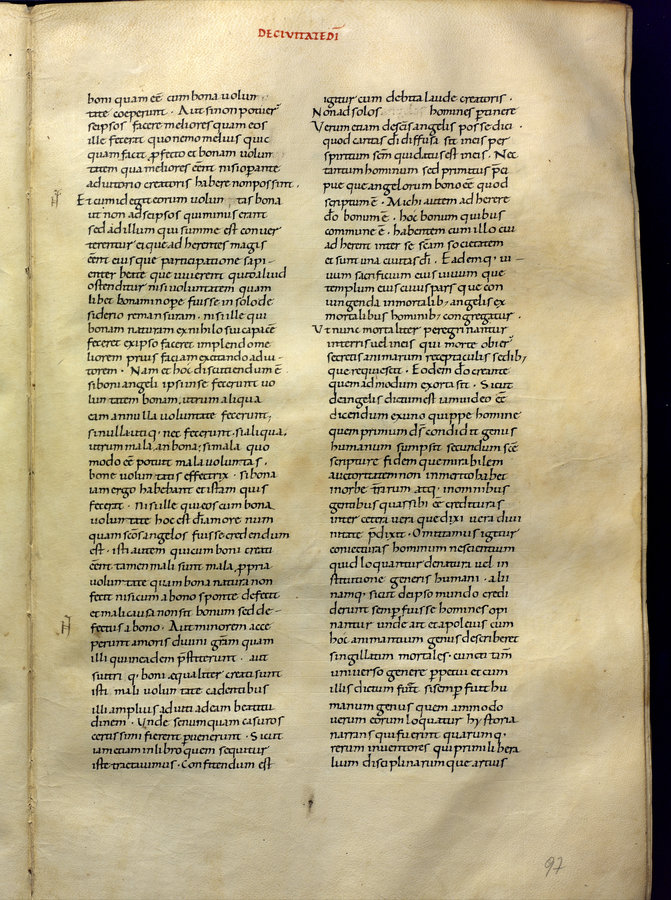 DE CIVITATE DĪ
boni quam eē cum bona uolun
tate coeperunt . Aut si non potuer̄
seipsos facere meliores quam eos
ille fecerat quo nemo melius quic
quam facit ꝓfecto et bonam uolun
tatem qua meliores eēnt nisi opante
adiutorio creatoris habere non possint .
Et cum id egit eorum uolun tas bona
ut non ad seipsos qui minus erant
sed ad illum qui summe est conuer
terentur eique adherentes magis
eēnt eiusque participatione sapi-
enter beate que uiuerent quid aliud
ostenditur nisi uoluntatem quam
libet bonam inope fuisse in solo de
siderio remansuram . nisi ille qui
bonam naturam ex nihilo sui capacē
fecerat ex ipso faceret implendo me
liorem prius faciam excitando adiui-
torem . Nam et hoc discutiendum ē
si boni angeli ipsi in se fecerunt uo
luntatem bonam . utrum aliqua
eam an nulla uoluntate fecerunt ;
si nulla utiq· nec fecerunt . si aliqua .
utrum mala an bona ; si mala quo
modo eē potuit mala uoluntas .
bone uoluntatis effectrix . si bona
iam ergo habebant et istam quis
fecerat . nisi ille qui eos cum bona
uoluntate hoc est cū amore num
quam scōs angelos fuisse credendum
est . isti autem qui cum boni creati
eēnt tamen mali sunt mala ꝓpria
uoluntate quam bona natura non
fecit nisi cum a bono sponte defecit
et mali causa non sit bonum sed de-
fectus a bono . Aut minorem acce
perunt amoris diuini gr̄am quam
illi qui in eadem p̄stiterunt . aut
si utri q· boni equaliter creati sunt
isti mali uoluntate cadentibus
illi amplius adiuti ad eam beatitu
dinem . Unde se numquam casuros
certissimi fierent puenerunt . Sicut
iam etiam in libro quem sequitur
iste tractauimus . Confitendum est
igitur cum debita laude creatoris .
Non ad solos homines ptinere
Verum etiam de scīs angelis posse dici .
quod caritas dī diffusa sit in eis per
spiritum scm̄ qui datus est in eis . Nec
tantum hominum sed primitus p̄ci
pue que angelorum bono eē quod
scriptum ē . Michi autem adherere
dō bonum ē . hoc bonum quibus
commune ē . habent et cum illo cui
adherent inter se scām societatem
et sunt una ciuitas dī . Eadem q· ui-
uum sacrificium eius uiuum que
templum eius cuius pars que con
iungenda inmortalib; angelis ex
mortalibus hominib; congregatur .
Ut nunc mortaliter peregrinantur
in terris uel in eis qui morte obier̄
secretis animarum receptaculis sedib;
que requiescit . Eodem dō creante
quemadmodum exorta sit . Sicut
de angelis dictum est iam uideo eē
dicendum ex uno quippe homine
quem primum dς condidit genus
humanum sumpsit secundum scē
scripture fidem que mirabilem
auctoritatem non inmerito habet
in orbe trarum atq; in omnibus
gentibus quas sibi eē credituras
inter cetera uera que dixit uera diui
nitate p̄dixit . Omittamus igitur
coniecturas hominum nescientium
quid loquantur de natura uel in
stitutione generis humani . alii
namq· sicut de ipso mundo credi
derunt semp fuisse homines opi
nantur unde ait et apoleius cum
hoc animantium genus describeret
singillatim mortales . cuncti tam̄
uniuerso genere ppetui et cum
illis dictum fuit̄ si semp fuit hu
manum genus quem ammodo
uerum eorum loquatur hystoria
narrans qui fuerint quarumq·
rerum inuentores qui primi libera
lium disciplinarum que artius
97